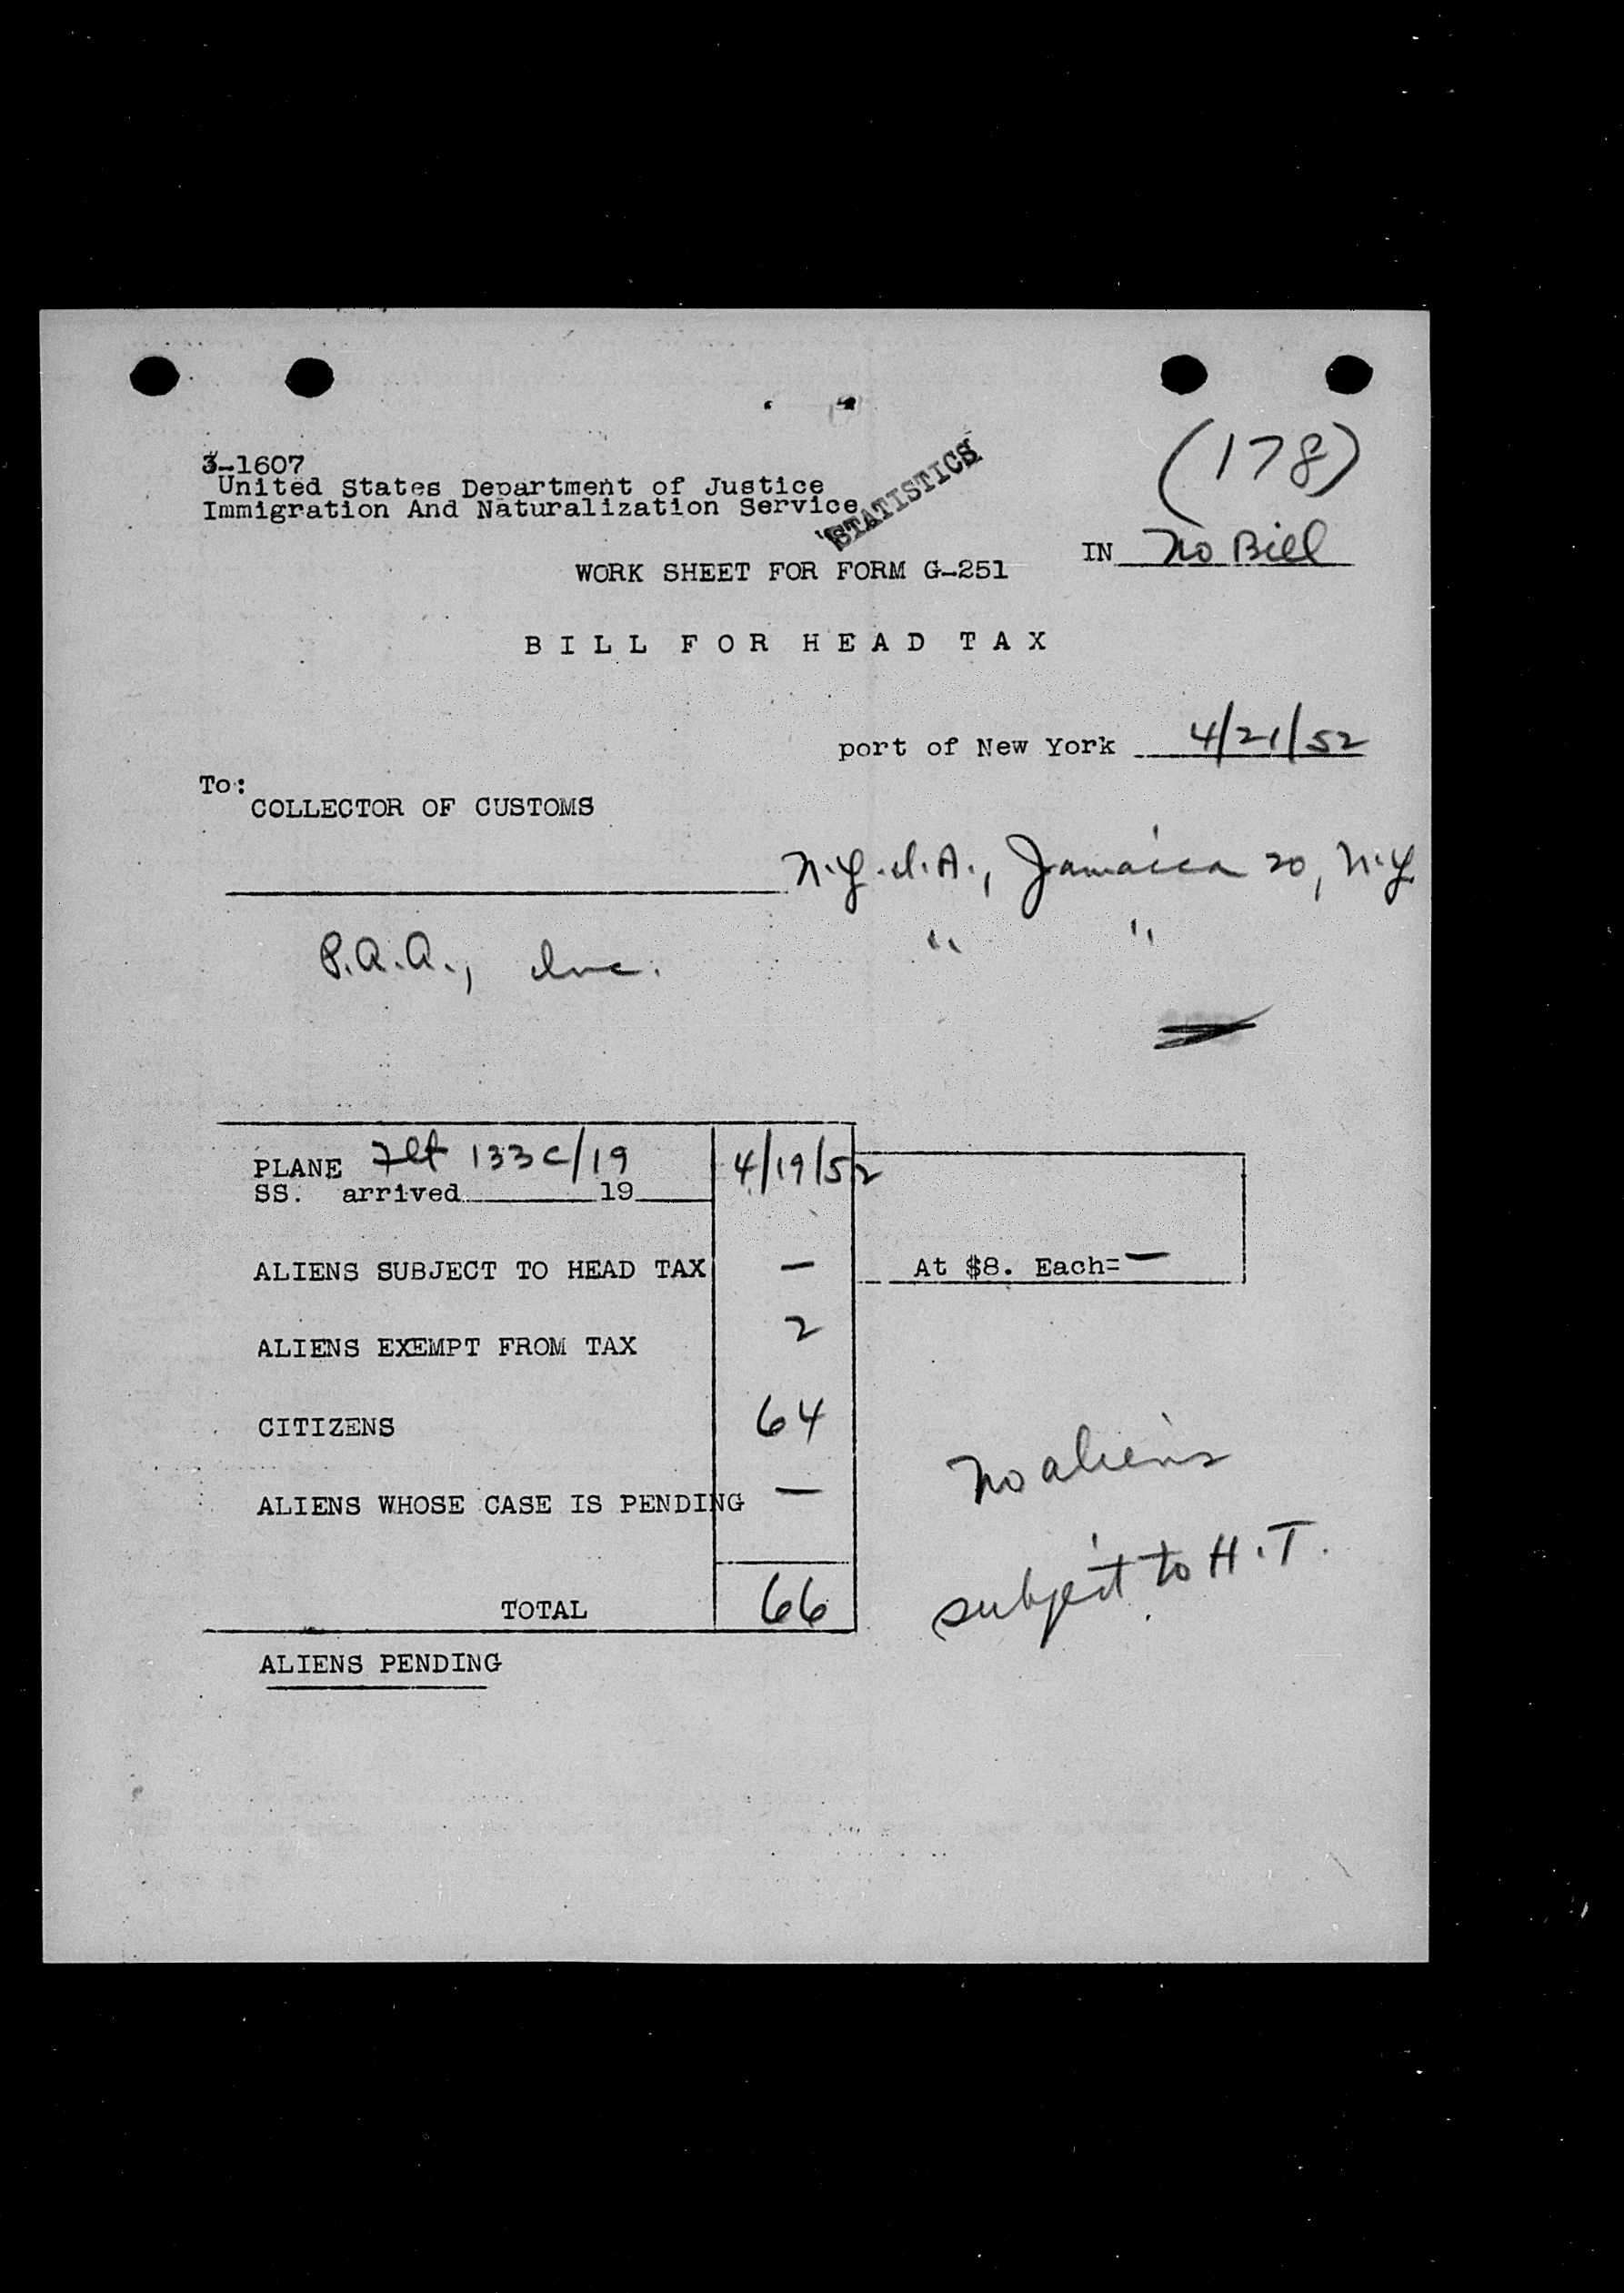 (178)
3-1607
United States Department of Justice
Immigration And Naturalization Service
STATISTICS
IN No Bill
WORK SHEET FOR FORM G-251
BILL FOR HEAD TAX
port of New York 4/21/52
To:
COLLECTOR OF CUSTOMS
N.Y.I.A., Jamaica 20, N.Y.
P.A.A., Inc. " "
PLANE Flt 133C/19 4/19/52
SS. arrived 19
ALIENS SUBJECT TO HEAD TAX — At $8. Each= —
ALIENS EXEMPT FROM TAX 2
CITIZENS 64
No aliens
ALIENS WHOSE CASE IS PENDING —
subject to H.T.
TOTAL 66
ALIENS PENDING